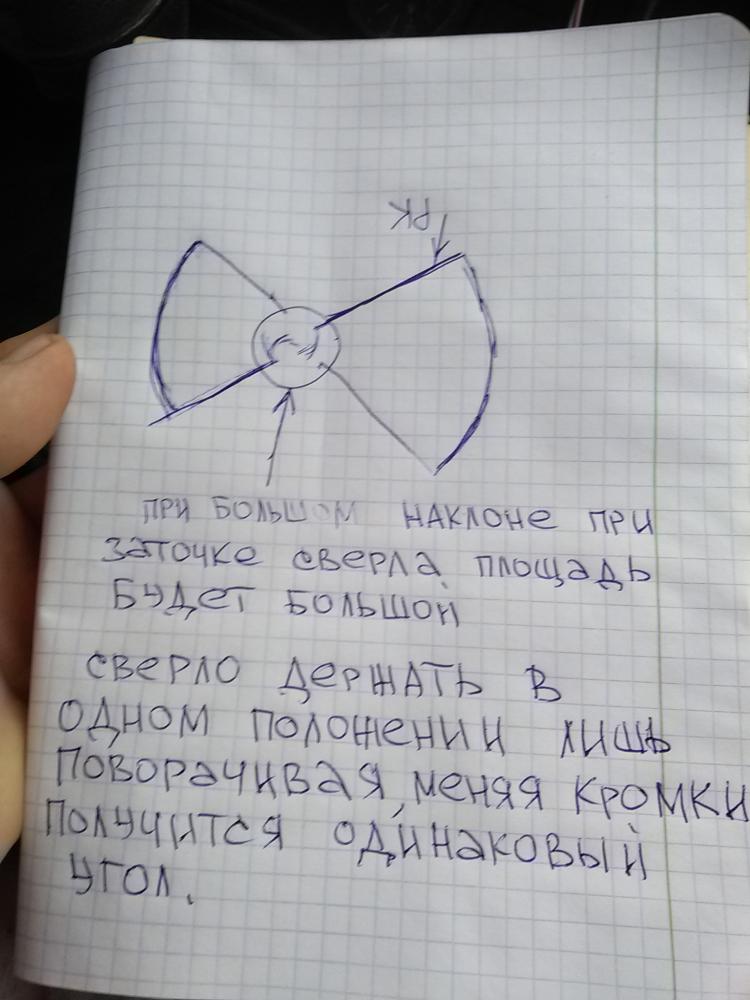 РК
ПРИ БОЛЬШОМ НАКЛОНЕ ПРИ
ЗАТОЧКЕ СВЕРЛА ПЛОЩАДЬ
БУДЕТ БОЛЬШОЙ
СВЕРЛО ДЕРЖАТЬ В
ОДНОМ ПОЛОЖЕНИИ ЛИШЬ
ПОВОРАЧИВАЯ, МЕНЯЯ КРОМКИ
ПОЛУЧИТСЯ ОДИНАКОВЫЙ
УГОЛ.